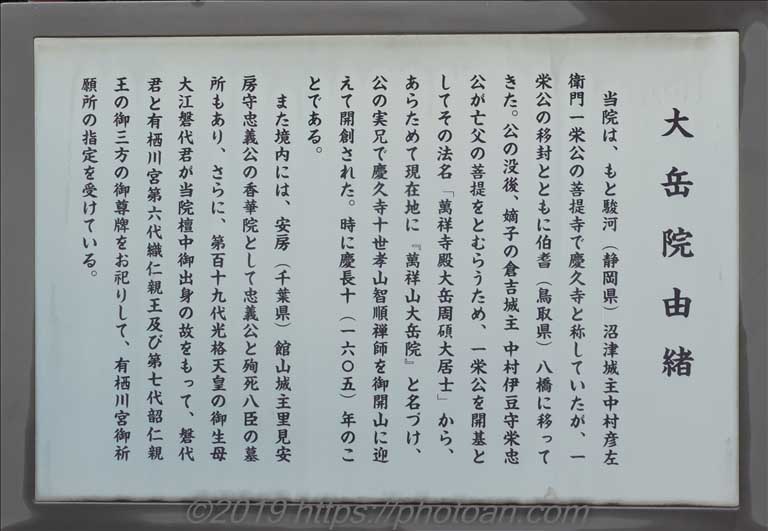 大岳院由緒
当院は、もと駿河（静岡県）沼津城主中村彦左
衛門一栄公の菩提寺で慶久寺と称していたが、一
栄公の移封とともに伯耆（鳥取県）八橋に移って
きた。公の没後、嫡子の倉吉城主 中村伊豆守栄忠
公が亡父の菩提をとむらうため、一栄公を開基と
してその法名「萬祥寺殿大岳周碩大居士」から、
あらためて現在地に『萬祥山大岳院』と名づけ、
公の実兄で慶久寺十世孝山智順禅師を御開山に迎
えて開創された。時に慶長十（一六〇五）年のこ
とである。
また境内には、安房（千葉県）館山城主里見安
房守忠義公の香華院として忠義公と殉死八臣の墓
所もあり、さらに、第百十九代光格天皇の御生母
大江磐代君が当院檀中御出身の故をもって、磐代
君と有栖川宮第六代織仁親王及び第七代韶仁親
王の御三方の御尊牌をお祀りして、有栖川宮御祈
願所の指定を受けている。
©2019 https://photoan.com